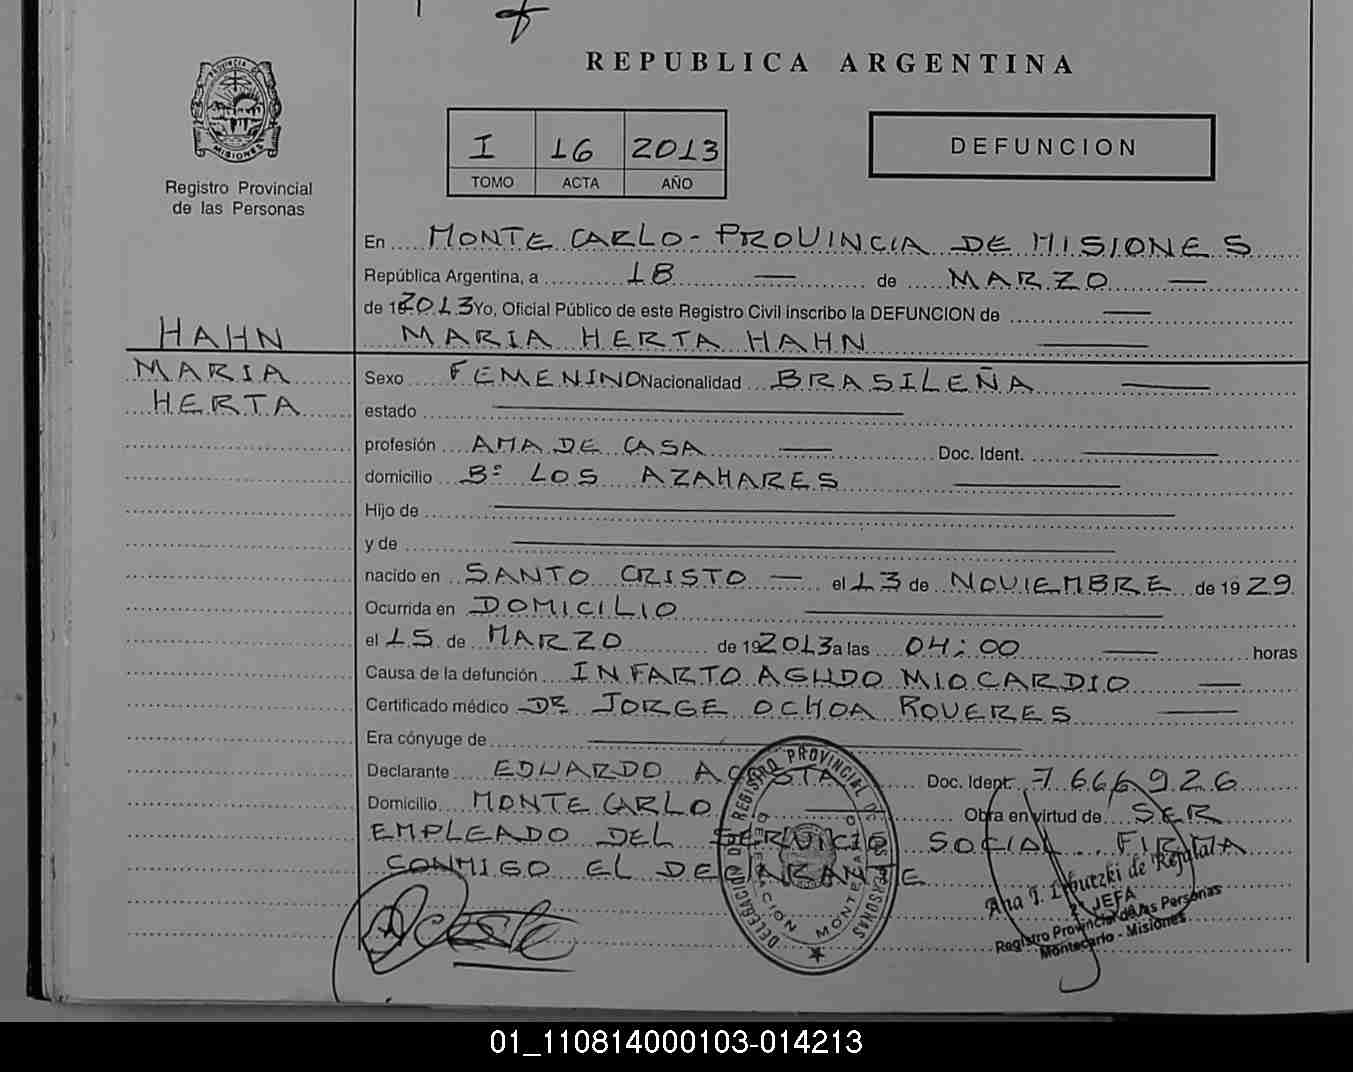 REPUBLICA ARGENTINA
PROVINCIA DE
MISIONES
Registro Provincial
de las Personas
I 16 2013
TOMO ACTA AÑO
DEFUNCION
En MONTE CARLO - PROVINCIA DE MISIONES
República Argentina, a 18 — de MARZO —
de 19 2013 Yo, Oficial Público de este Registro Civil inscribo la DEFUNCION de —
MARIA HERTA HAHN —
HAHN
MARIA
HERTA
Sexo FEMENINO Nacionalidad BRASILEÑA —
estado —
profesión AMA DE CASA — Doc. Ident. —
domicilio Bº LOS AZAHARES —
Hijo de —
y de —
nacido en SANTO CRISTO — el 13 de NOVIEMBRE de 19 29
Ocurrida en DOMICILIO —
el 15 de MARZO de 19 2013 a las 04:00 — horas
Causa de la defunción INFARTO AGUDO MIOCARDIO —
Certificado médico DR. JORGE OCHOA ROVERES —
Era cónyuge de —
Declarante EDUARDO ACOSTA Doc. Ident. 7666926
Domicilio MONTE CARLO — Obra en virtud de SER
EMPLEADO DEL SERVICIO SOCIAL. FIRMA
CONMIGO EL DECLARANTE
DELEGACION REGISTRO PROVINCIAL DE LAS PERSONAS
DELEGACION MONTECARLO
Ana T. de
JEFA
Registro Provincial de las Personas
Montecarlo - Misiones
01_110814000103-014213